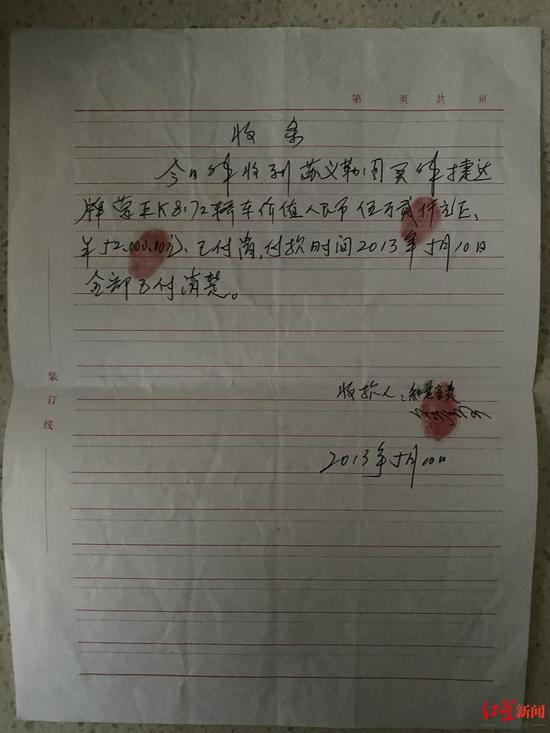 第 页 共 页
收条
今日 收到 苏义勒图买 捷达
牌蒙EK8172轿车价值人民币伍万贰仟元正、
52,000.00元、已付清,付款时间2013年5月10日
全部已付清楚。
装订线
收款人:
2013年5月10日
红星新闻